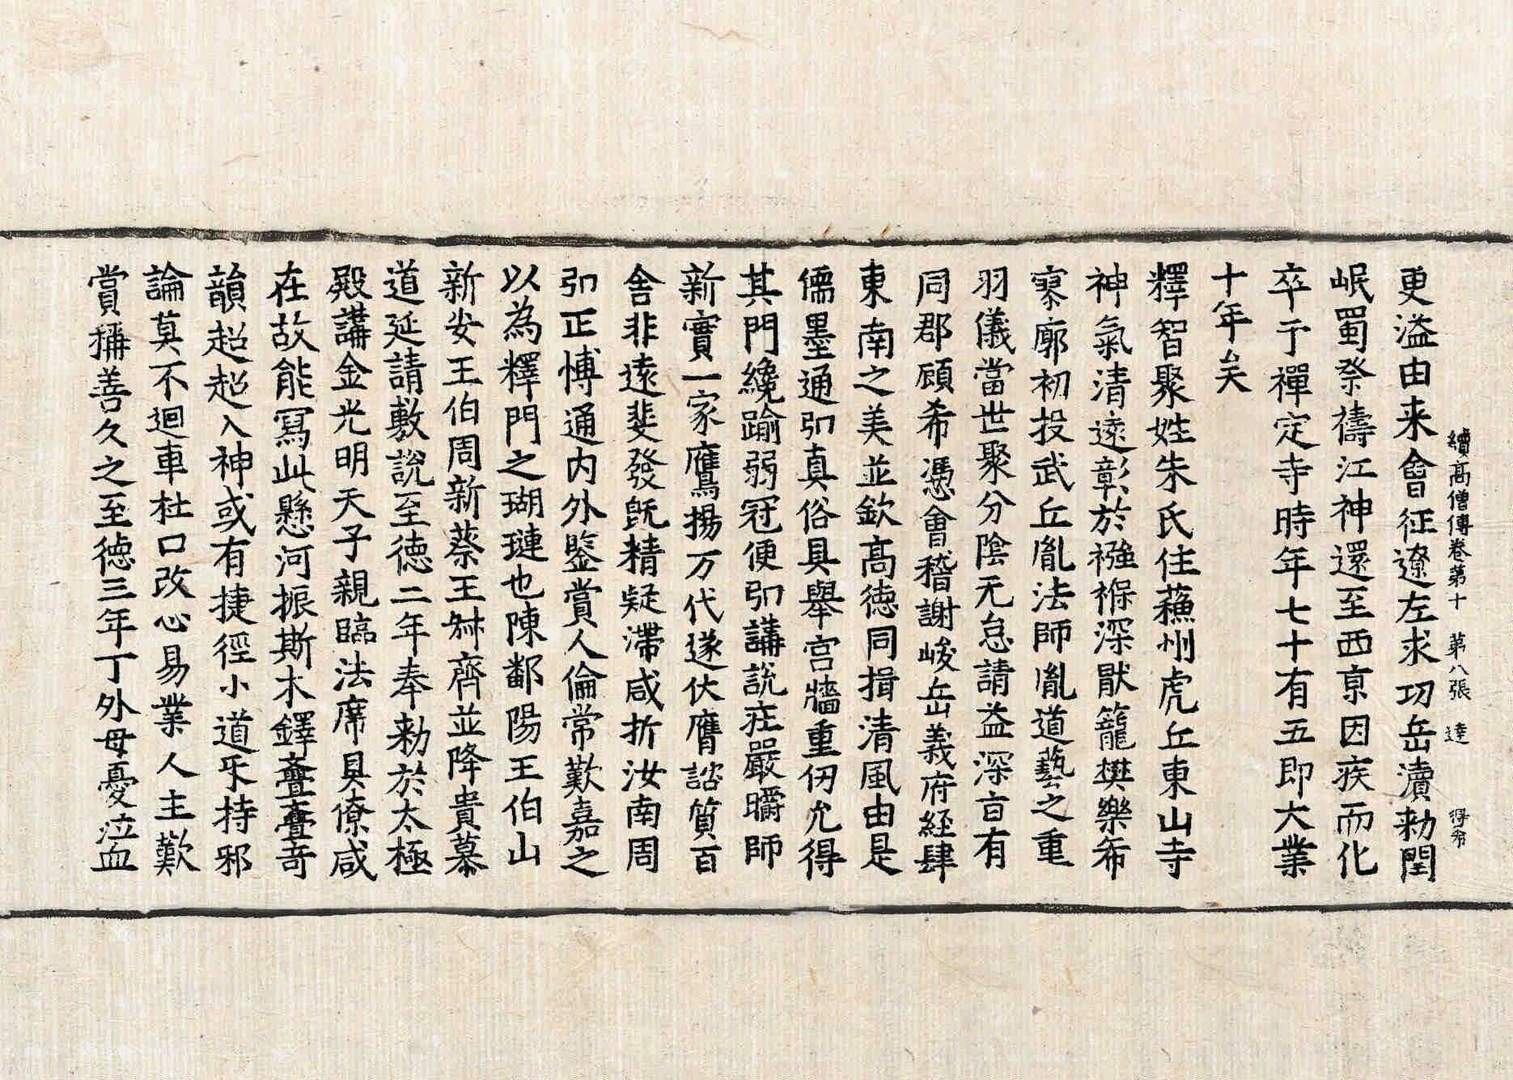 續髙僧傳卷第十　第八張　達
更溢由来會征遼左求功岳瀆勑閏
岷蜀祭禱江神還至西亰因疾而化
卒于禪定寺時年七十有五即大業
十年矣
釋智聚姓朱氏住蘓州虎丘東山寺
神氣清遠彰於襁褓深猒籠樊樂希
寥廓初投武丘胤法師胤道藝之重
羽儀當世聚分陰无怠請益深㫖有
同郡顧希憑會稽謝峻岳義府經肆
東南之美並欽髙德同揖清風由是
儒墨通弘真俗具舉宫牆重仞允得
其門纔踰弱冠便弘講說莊嚴㬭師
新實一家鷹揚万代遂伏膺諮質百
舍非遠斐發旣精疑滯咸折汝南周
弘正博通内外鑒賞人倫常歎嘉之
以為釋門之瑚璉也陳鄱陽王伯山
新安王伯周新蔡王㪽齊並降貴慕
道延請敷說至德二年奉勑於太極
殿講金光明天子親臨法席具僚咸
在故能寫此懸河振斯木鐸亹亹竒
韻超超入神或有捷徑小道乐持邪
論莫不迴車杜口改心易業人主歎
賞稱善久之至德三年丁外母憂泣血